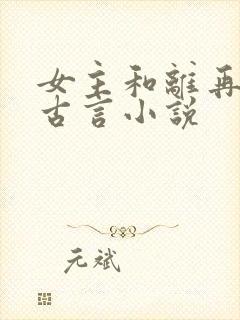 女主和離再
古言小說
元斌